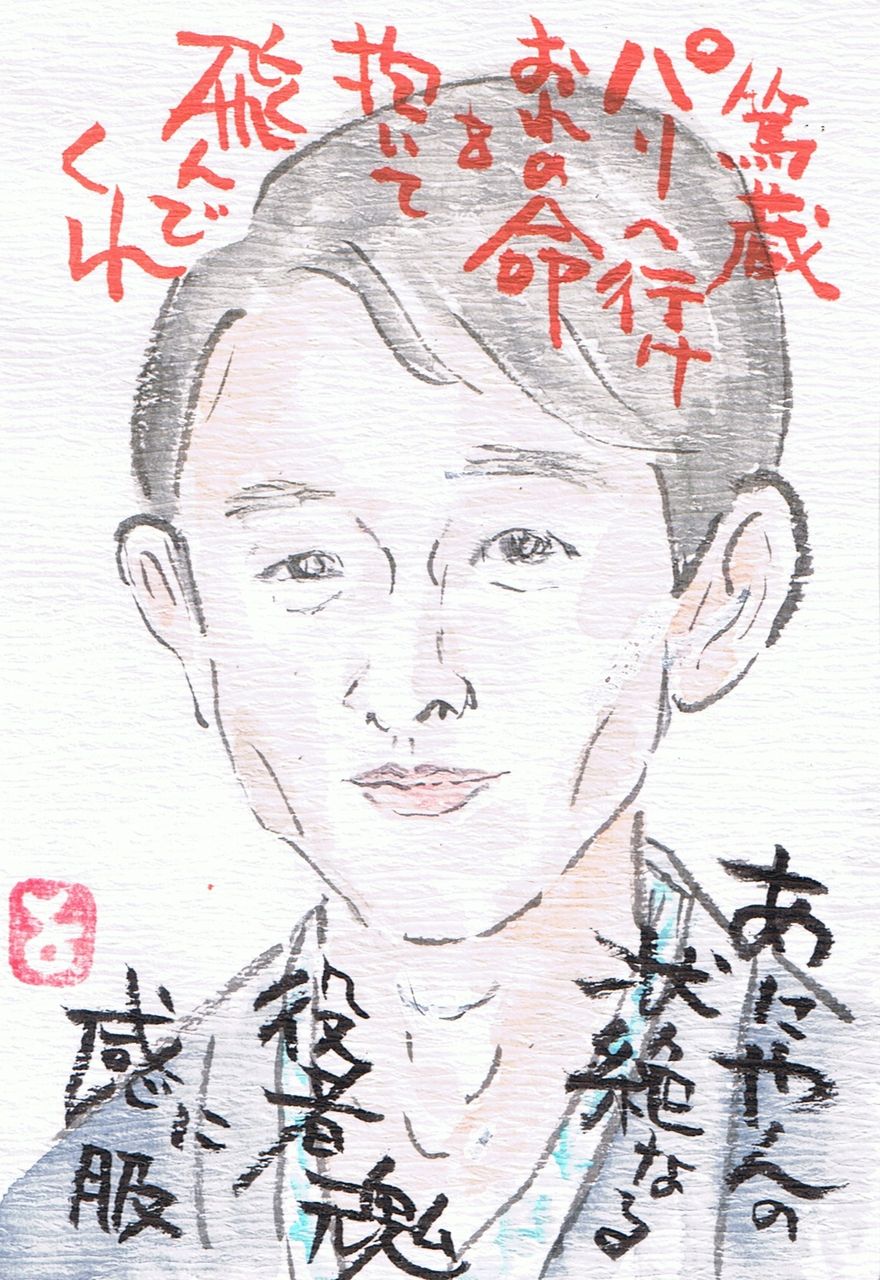 篤蔵
パリへ行け
おれの命
を
抱いて
飛んで
くれ
あにやんの
状絶なる
役者魂
に
感服